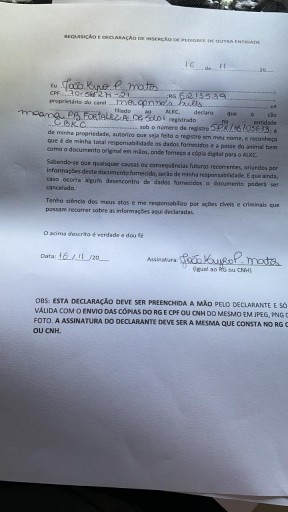 REQUISIÇÃO E DECLARAÇÃO DE INSERÇÃO DE PEDIGREE DE OUTRA ENTIDADE
16 de 11 20
Eu João Kyro P. matos
CPF RG 6213539
proprietário do canil nº
filiado ao ALKC, declaro que o cão
Fortaleza registrado na entidade
CBKC sob o número de registro
de minha propriedade, autorizo que seja feito o registro em meu nome, e reconheço
que é de minha total responsabilidade os dados fornecidos e a posse do animal bem
como o documento original em mãos, onde forneço a cópia digital para o ALKC.
Sabendo-se que quaisquer causas ou consequências futuras recorrentes, oriundos por
informações deste documento fornecido, serão de minha responsabilidade. E que ainda,
caso ocorra algum desencontro de dados fornecidos o documento poderá ser
cancelado.
Tenho ciência dos meus atos e me responsabilizo por ações cíveis e criminais que
possam recorrer as informações aqui declaradas.
O acima descrito é verdade e dou fé
Data: 16/11/20 Assinatura: João Kyro P. matos
(igual ao RG ou CNH)
OBS: ESTA DECLARAÇÃO DEVE SER PREENCHIDA A MÃO PELO DECLARANTE E SÓ
VÁLIDA COM O ENVIO DAS CÓPIAS DO RG E CPF OU CNH DO MESMO EM JPEG, PNG
FOTO. A ASSINATURA DO DECLARANTE DEVE SER A MESMA QUE CONSTA NO RG
OU CNH.